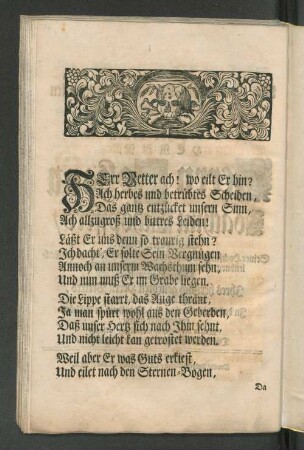 HErr Vetter ach! wo eilt Er hin?
Ach herbes und betrübtes Scheiden,
Das gantz entzücket unsern Sinn,
Ach allzugroß und bittres Leiden!
Läßt Er uns denn so traurig stehn?
Ich dacht', Er solte Sein Vergnügen
Annoch an unserm Wachsthum sehn,
Und nun muß Er im Grabe liegen.
Die Lippe starrt, das Auge thränt,
Ja man spürt wohl aus den Geberden,
Daß unser Hertz sich nach Ihm sehnt,
Und nicht leicht kan getröstet werden.
Weil aber Er was Guts erkiest,
Und eilet nach den Sternen-Bogen,
Da